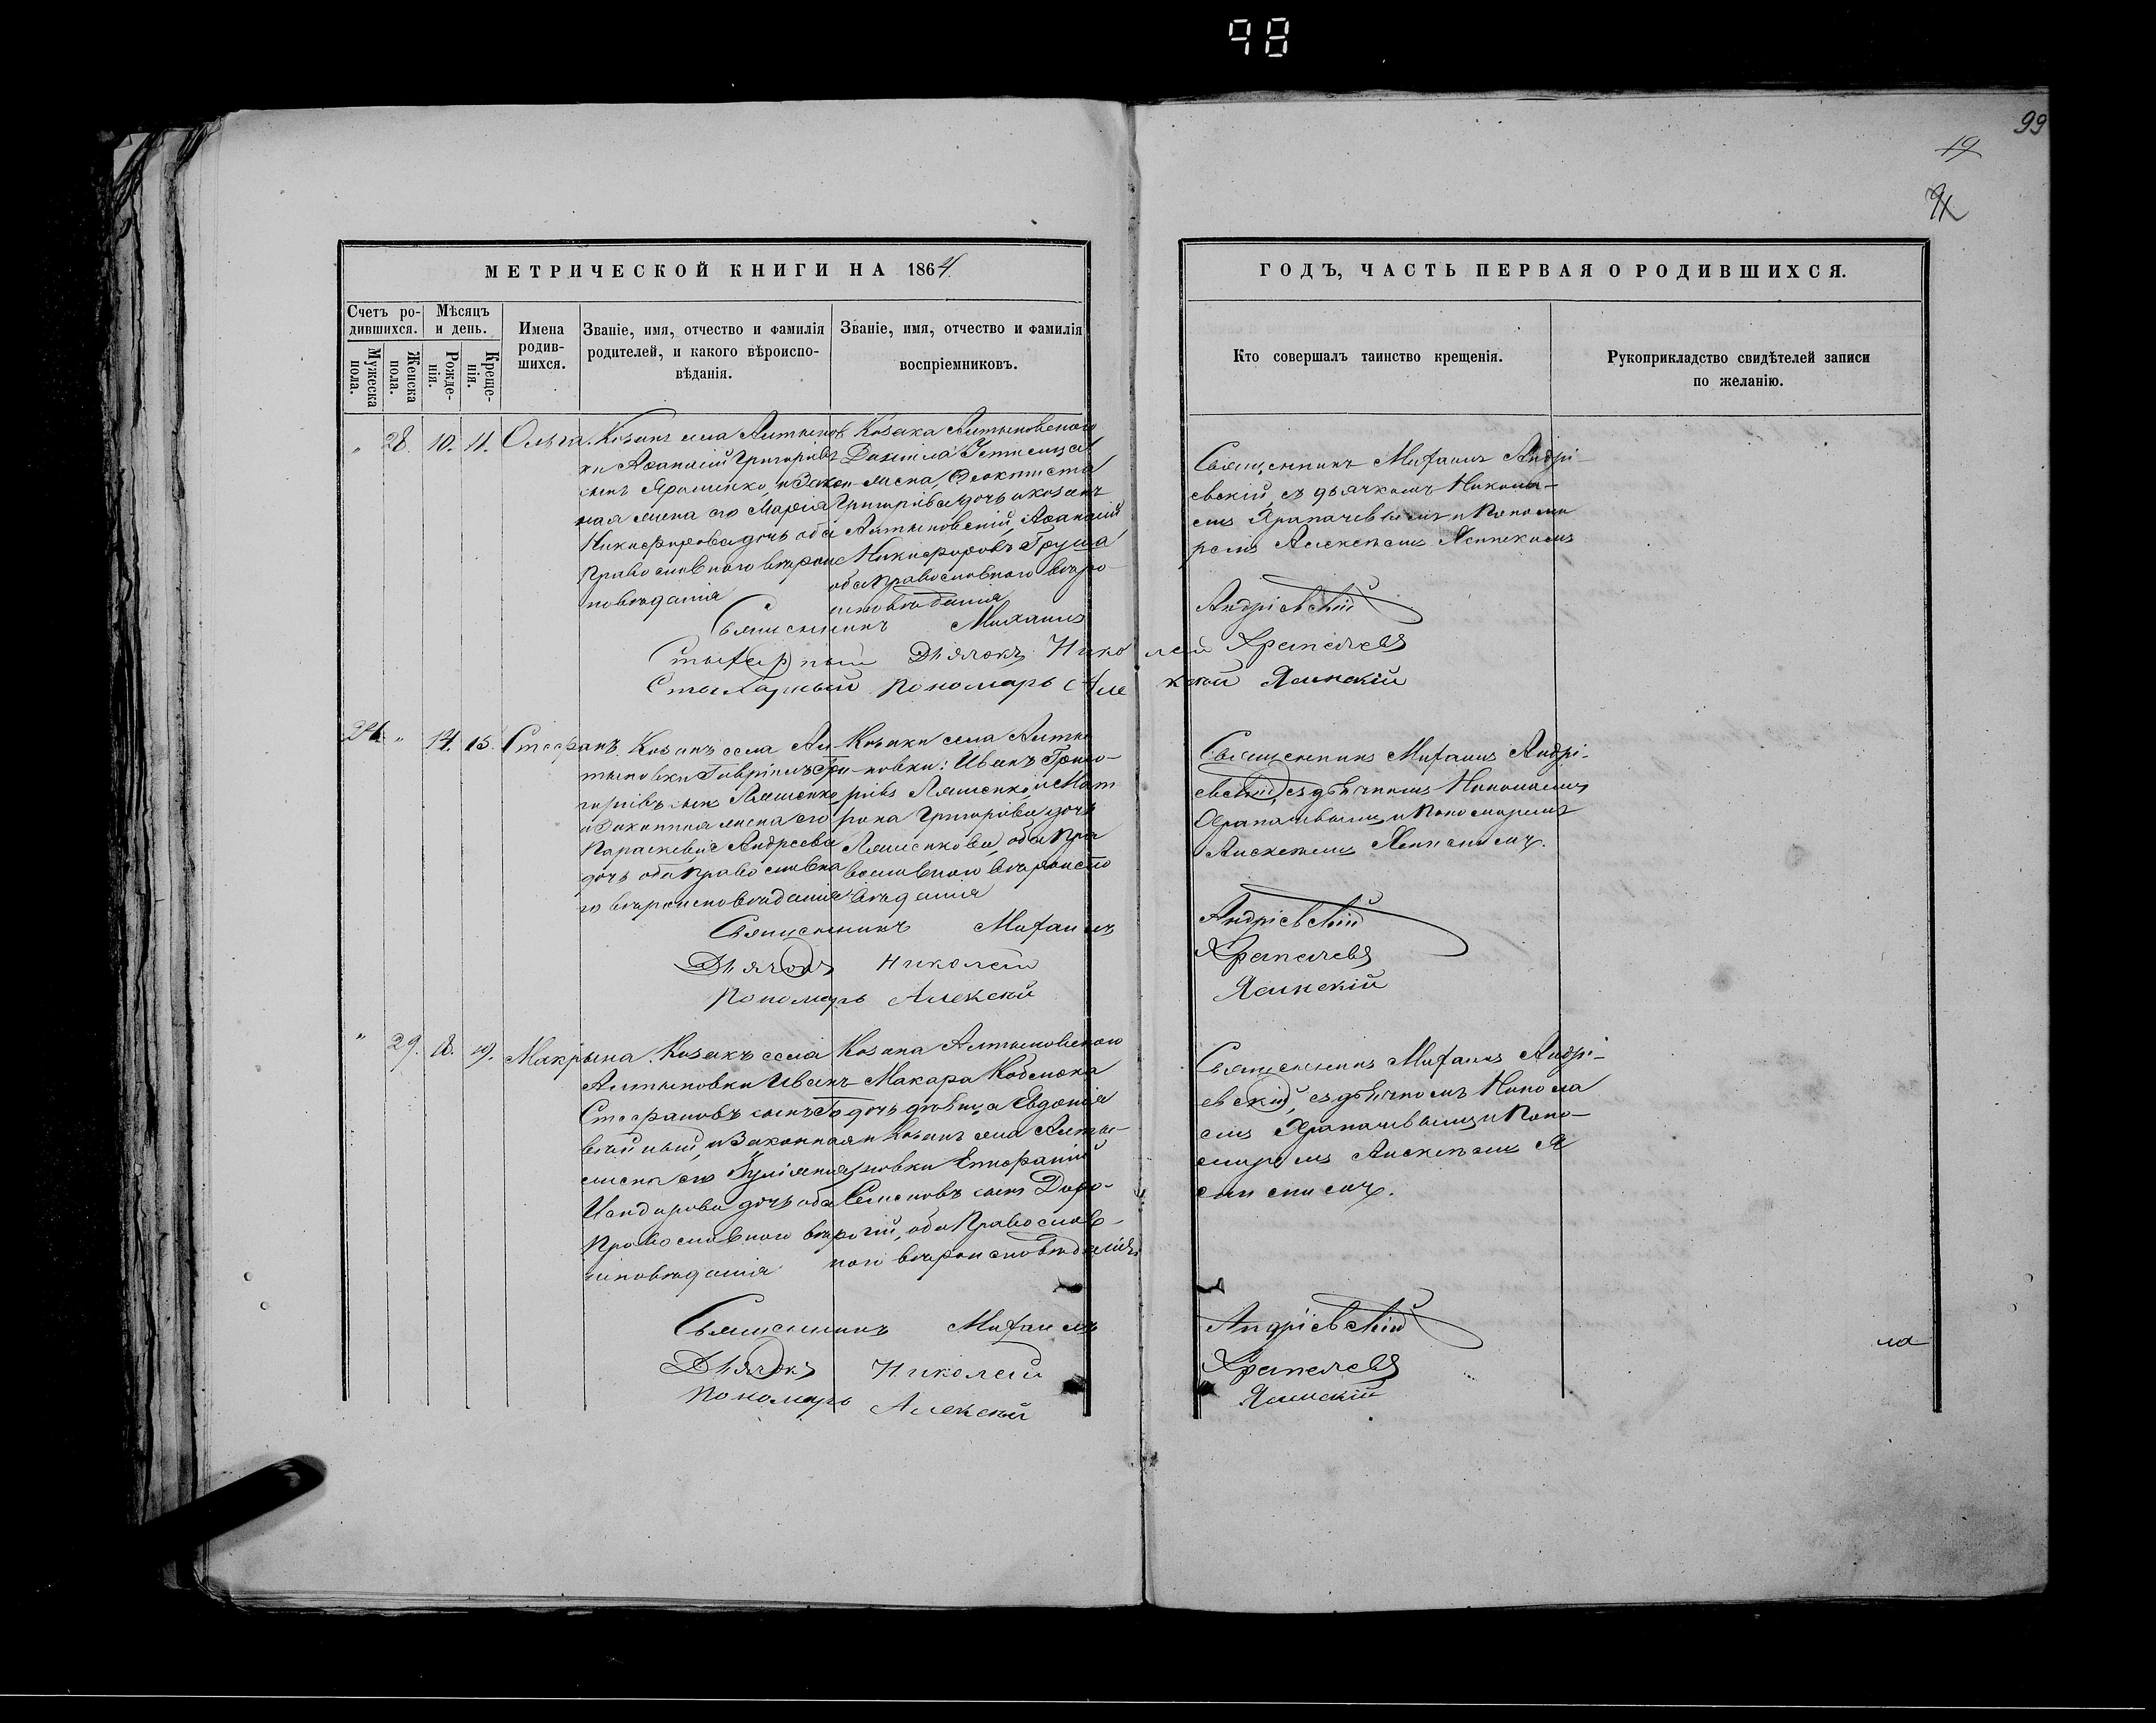 98
99
19
МЕТРИЧЕСКОЙ КНИГИ НА 1864
ГОДЪ, ЧАСТЬ ПЕРВАЯ О РОДИВШИХСЯ.
Счетъ ро-
дившихся.
Мѣсяцъ
и день.
Мужеска
пола.
Женска
пола.
Рожде-
нія.
Креще-
нія.
Имена
родив-
шихся.
Званіе, имя, отчество и фамилія
родителей, и какого вѣроиспо-
вѣданія.
Званіе, имя, отчество и фамилія
воспріемниковъ.
Кто совершалъ таинство крещенія.
Рукоприкладство свидѣтелей записи
по желанію.
" 28. 10. 11. Ольга.
Козакъ села Алтынов
ки Аѳанасій Григоріевъ
сынъ Ярошенко, и Закон
ная жена его Марѳа
Никифорова дочь оба
Православного вѣрои
повѣданія
Козака Алтыновского
Данила
жена, Ѳеоктиста
Григоріева дочь и козакъ
Алтыновскій, Аѳанасій
Никифоровъ Груша,
оба Православного вѣро-
исповѣданія
Священникъ Михаилъ Андрі-
евскій, съ дьячкомъ Никола-
емъ Храпачевымъ и Понома
ремъ Алексѣемъ
Священникъ Михаилъ Андріевскій
Дьячокъ Николай Храпачевъ
Пономарь Алексѣй Ясинскій
24 " 14. 15. Стефанъ
Козакъ села Ал-
тыновки Гавріилъ Гри-
горіевъ сынъ Ляшенко
и Законная жена его
Параскевія Андреева
дочь оба Православна
го вѣроисповѣданія
Козаки села Алты
новки: Иванъ Григо-
ріевъ Ляшенко и Мат
рона Григорьева дочь
Ляшенкова, оба Пра
вославного вѣроиспо
вѣданія
Священникъ Михаилъ Андрі-
евскій, съ дьячкомъ Николаемъ
Храпачевымъ и Пономаремъ
Алексѣемъ
Священникъ Михаилъ Андріевскій
Дьячокъ Николай Храпачевъ
Пономарь Алексѣй Ясинскій
" 29. 18. 19. Макрына.
Козакъ села
Алтыновки Иванъ
Стефановъ сынъ Го
вѣйный, и Законная
жена его Іуліянія
дочь оба
Православного вѣро
исповѣданія
Козака Алтыновского
Макара
дочь дѣвица Евдокія
и Козакъ села Алты-
новки Епифаній
Семеновъ сынъ Доро-
гій, оба Православ-
ного вѣроисповѣданія
Священникъ Михаилъ Андрі-
евскій, съ дьячкомъ Никола
емъ Храпачевымъ и Поно-
маремъ Алексѣемъ Я
Священникъ Михаилъ Андріевскій
Дьячокъ Николай Храпачевъ
Пономарь Алексѣй Ясинскій
ла